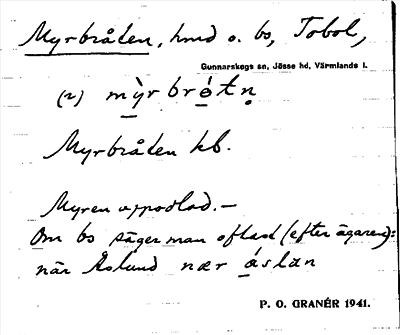 Myrbråten, hmd o. bs, Tobol,
Gunnarskogs sn, Jösse hd, Värmlands l.
(2) mỳr brǿtn̥
Myrbråten kb.
Myren uppodlad.—
Om bs säger man oftast (efter ägaren):
när Åslund nær áslan
P. O. GRANÉR 1941.